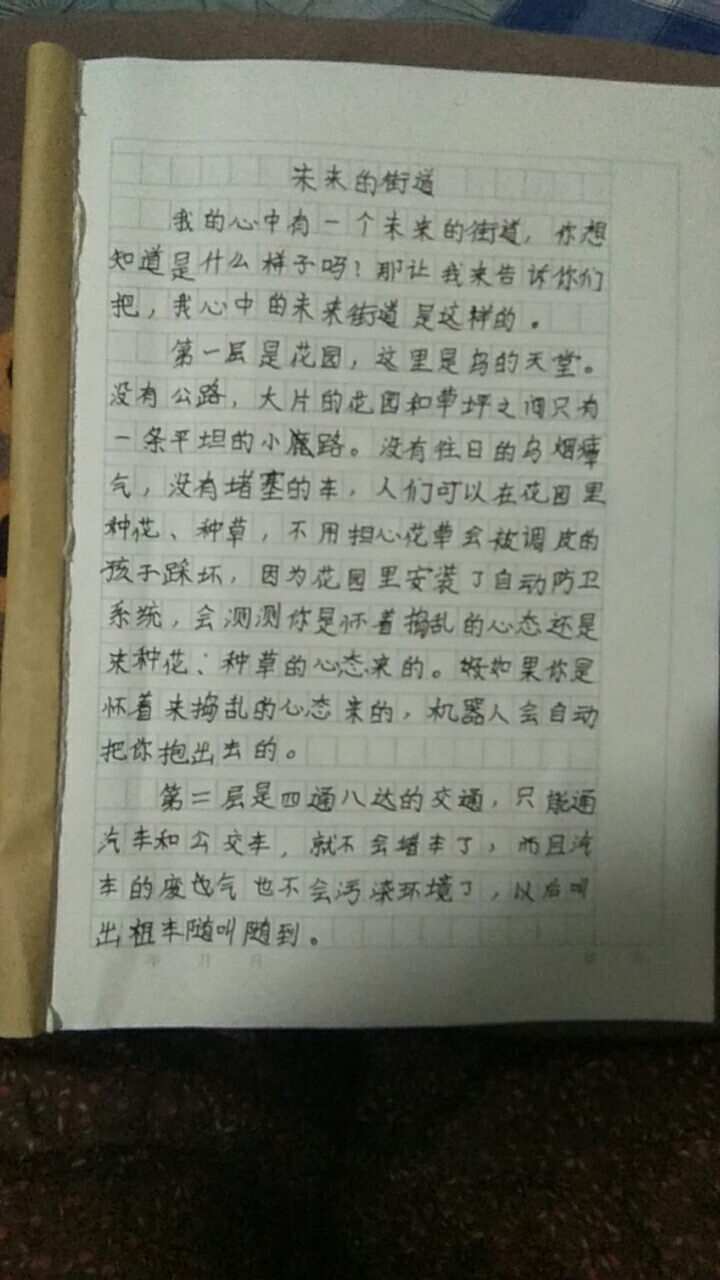 未来的街道
我的心中有一个未来的街道，你想
知道是什么样子吗？那让我来告诉你们
把，我心中的未来街道是这样的。
第一层是花园，这里是鸟的天堂。
没有公路，大片的花园和草坪之间只有
一条平坦的小路。没有往日的乌烟瘴
气，没有堵塞的车，人们可以在花园里
种花、种草，不用担心花草会被调皮的
孩子踩坏，因为花园里安装了自动防卫
系统，会测测你是怀着捣乱的心态还是
来种花、种草的心态来的。如果你是
怀着来捣乱的心态来的，机器人会自动
把你抱出去的。
第二层是四通八达的交通，只能通
汽车和公交车，就不会堵车了，而且汽
车的废气也不会污染环境了，以后叫
出租车随叫随到。
年 月 日